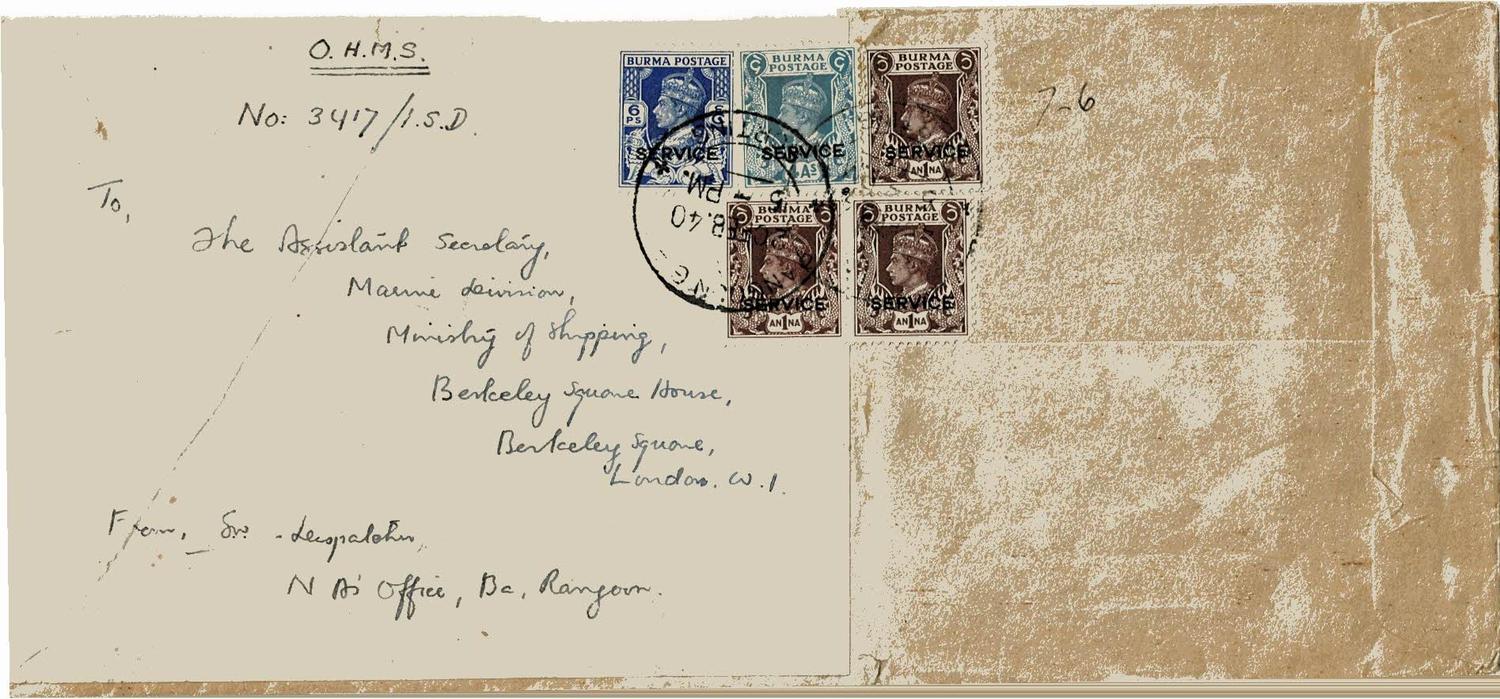 O.H.M.S.
No: 3417/I.S.D.
To,
The Assistant Secretary,
Marine Division,
Ministry of Shipping,
Berkeley Square House,
Berkeley Square,
London. W.1.
From,
N As Office, Ba, Rangoon.
BURMA POSTAGE
6 PS
SERVICE
BURMA POSTAGE
AS
SERVICE
BURMA POSTAGE
SERVICE
AN1NA
7-6
BURMA POSTAGE
SERVICE
AN1NA
BURMA POSTAGE
SERVICE
AN1NA
5 PM
FEB.40